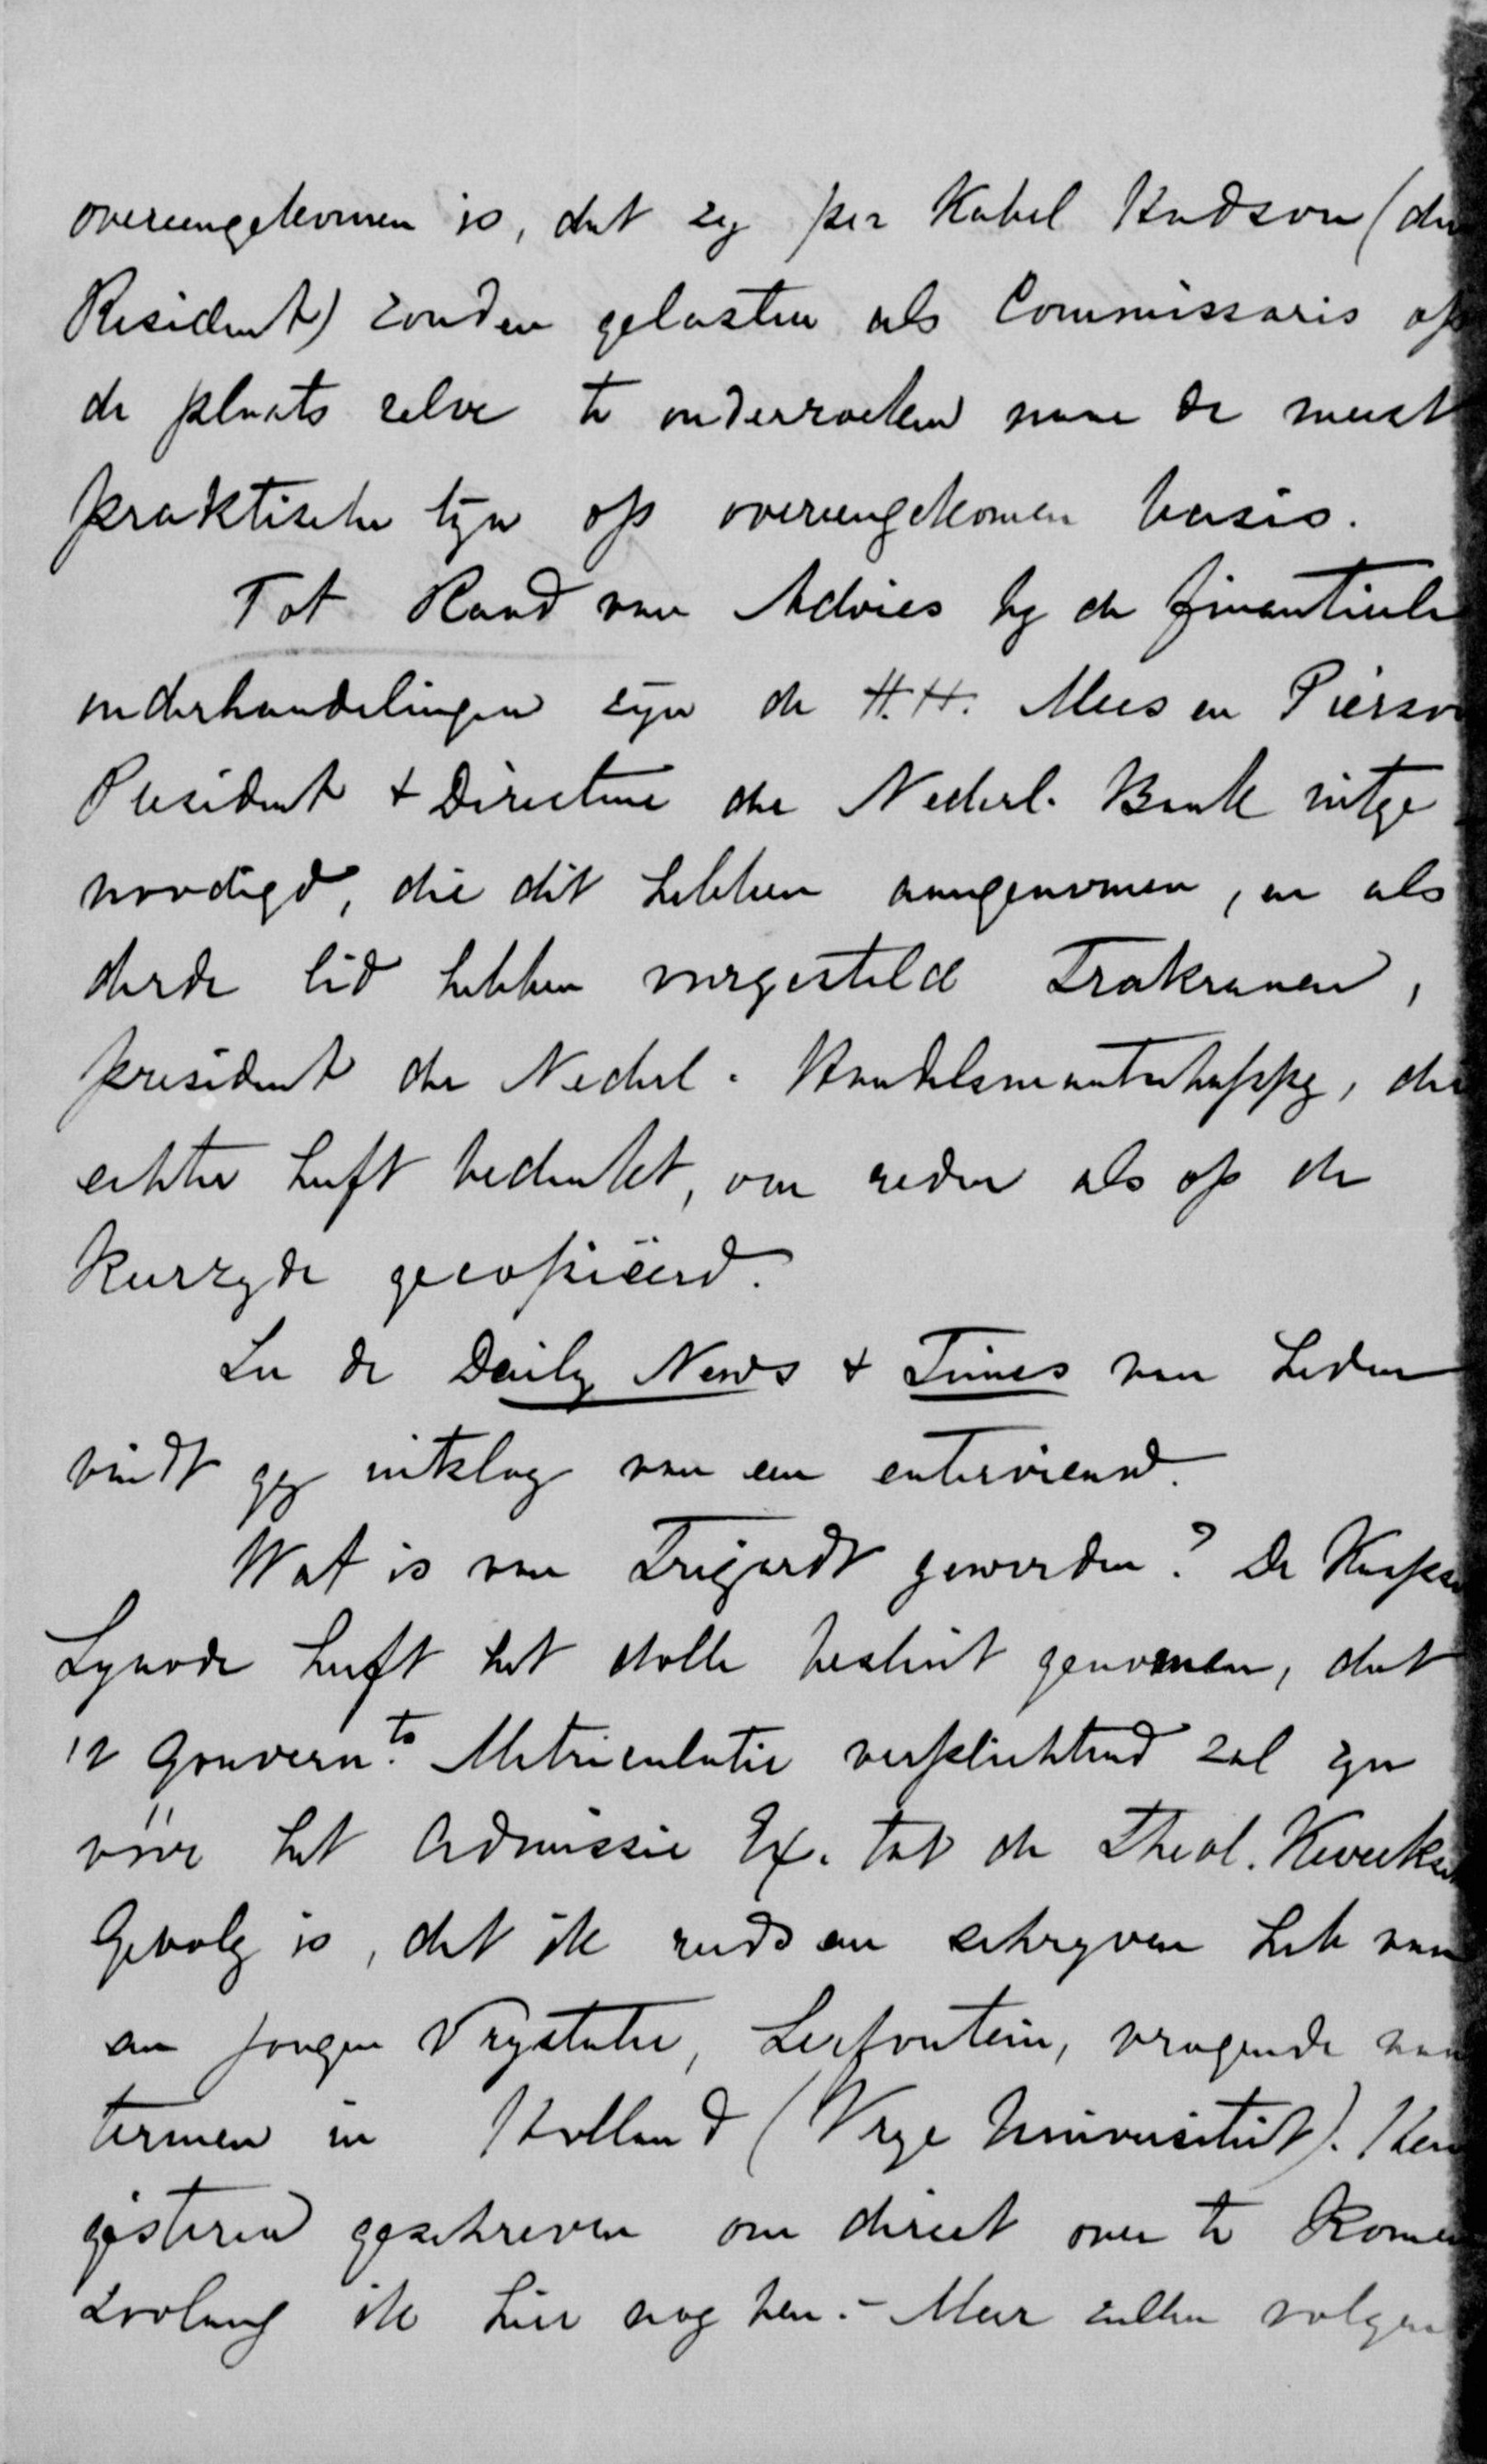 overeengekomen is, dat zy per Kabel Hudson (den
Resident) zouden gelasten als Commissaris op
de plaats zelve te onderzoeken naar de meest
praktische lyn op overeengekomen basis.
Tot Raad van Advies by de finantieele
onderhandelingen zyn de H.H. Mees en Pierson
President & Directeur der Nederl. Bank uitge
noodigd, die dit hebben aangenomen, en als
derde lid hebben voorgesteld Trakranen,
president der Nederl. Handelsmaatschappy, die
echter heeft bedankt, om reden als op de
keerzyde gecopieerd.
In de Daily News & Times van heden
vindt gy uitslag van een enterview.
Wat is van Trigardt geworden? De Kaapse
Synode heeft het dolle besluit genomen, dat
'n Gouvern.ts Matriculatie verplichtend zal zyn
vóór het Admissie Ex. tot de Theol. Kweeksch
Gevolg is, dat ik reeds een schryven heb van
een jongen Vrystater, Lerfontein, vragende naar
termen in Holland (Vrye Universiteit). Hem
gisteren geschreven om direct over te komen
zoolang ik hier nog ben. - Meer zullen volgen